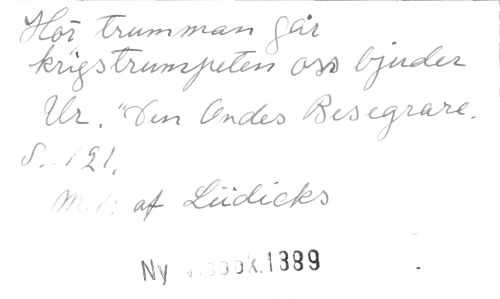 Hör trumman går
krigstrumpeten oss bjuder
Ur. "Den Ondes Besegrare.
S. 121.
af Lüdicks
Ny 1389